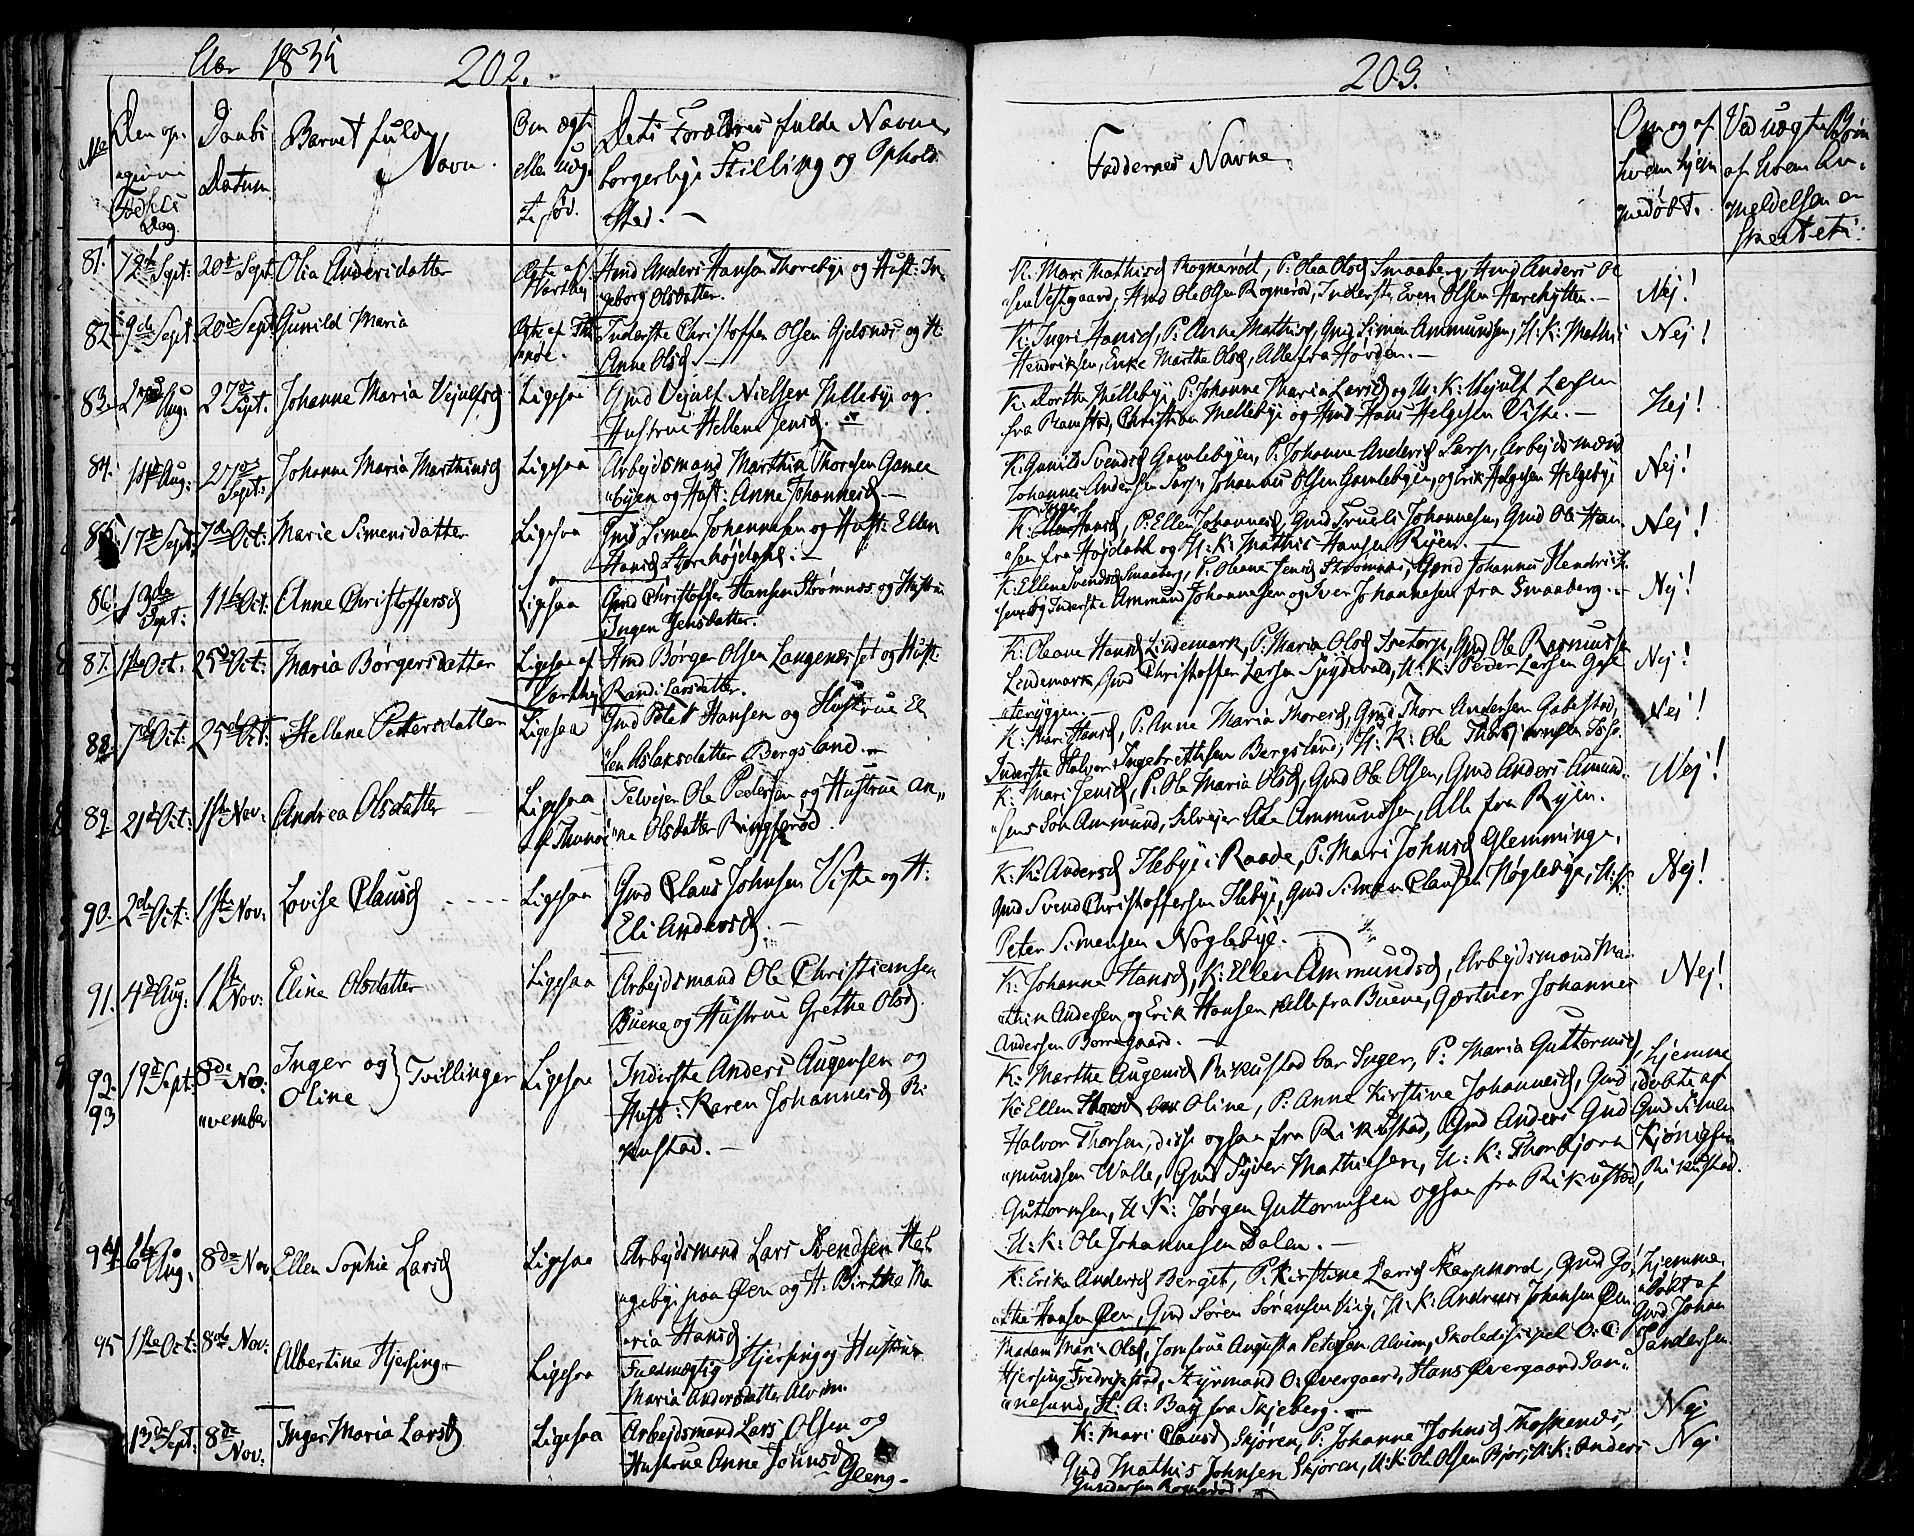 Aar 1835
202.
No
Den op-
Fødsels
Dag
Daabs
Datum
Barnet fulde
Navn.
Om ægte
eller uæg-
te fød.
Dets Forældres fulde Navne,
borgerlige Stilling og Opholds
sted. —
81. 12te Sept: 20de Sept Olia Andersdatter
Hmd Anders Hansen Thorebye og Hust: In-
geborg Olsdatter.
82. 9de Sept: 20de Sept Gunild Maria
Inderste Christoffer Olsen Gjelsnes og H:
Anne Olsd. —
83. Aug: 27de Sept. Johanne Maria Vejulfsd
Ligesaa
Gmd Vejulf Nielsen Mellebye og
Hustrue Hellene Jensd. —
84. 14de Aug: 27de Sept: Johanne Maria Marthinsd
Ligesaa
Arbejdsmand Marthin Thoresen Gamle
byen og Hust: Anne Johannesd —
85 17de Sept. 7de Oct: Marie Simensdatter
Ligesaa
Gmd Simen Johannesen og Hust: Ellen
Hansd
86. 13de Sept: 11te Oct. Anne Christoffersd
Ligesaa
Gmd Christoffer Hansen Strømnes og Hustru
Ingen Jensdatter.
87. 1ste Oct. 25de Oct: Maria Børgersdatter
Ligesaa af
Varthej
Hmd Børger Olsen Langenesset og Hust:
Randi Larsdatter.
88. 7de Oct: 25de Oct: Hellene Pettersdatter
Ligesaa
Gmd Peter Hansen og Hustrue El-
len Aslaksdatter Bergsland. —
89. 21de Oct: 1ste Nov: Andrea Olsdatter
Ligesaa
af Thunøe
Selvejer Ole Pedersen og Hustrue An-
ne Olsdatter Ringsrød.
90. 2de Oct: 1ste Nov: Lovise Clausd
Ligesaa
Gmd Claus Johnsen Viste og H:
Eli Andersd. —
91. 4de Aug: 1ste Nov: Eline Olsdatter
Ligesaa
Arbejdsmand Ole Christiansen
Buene og Hustrue Grethe Olsd.
92. 93 19de Sept: 8de No-
vember
Inger og
Oline } Tvillinger
Ligesaa
Inderste Anders Augensen og
Hust: Karen Johannesd Ri-
kustad. —
94. 6te Aug. 8de Nov Ellen Sophie Larsd
Ligesaa
Arbejdsmand Lars Svendsen Hel-
gebye paa Øen og H: Birthe Ma-
ria Hansd.
95 1ste Oct: 8de Nov: Albertine Hjersing
Ligesaa
Fuldmægtig Hjersing og Hustrue
Maria Andersdatter Alvim.
13de Sept: 8de Nov: Inger Maria Larsd
Ligesaa
Arbejdsmand Lars Olsen og
Hustrue Anne Johnsd
Gleng-
203.
Faddernes Navne.
Om og af
hvem hjem
medøbt.
Ved uægte Børn
af hvem An-
meldelsen er
skeet etc:
K. Mari Mathisd Rognerød, P: Olea Olsd Smaaberg, Hmd Anders Ol-
sen Vestgaard, Hmd Ole Olsen Rognerød, Inderste Even Olsen Harehytten. —
Nej!
K: Ingri Hansd, P: Anne Mathisd, Gmd Simen Ammundsen, U: K: Mathis
Hendriksen, Enke Marthe Olsd, Alle fra Horden. —
Nej!
K. Dorthe Mellebye, P: Johanne Maria Larsd og U: K: Vejulf Larsen
fra Ramstad, Christian Mellebye og Hmd Hans Helgesen Viste. —
Nej!
K: Gunild Svendsd Gamlebyen, P: Johanne Andersd Sarp, Arbejdsmænd
Johannes Andersen Sarp, Johannes Olsen Gamlebyen, og Erik Helgesen Helgebye
Nej!
K: Hansd, P: Ellen Johannesd, Gmd Truels Johannesen, Gmd Ole Han-
sen fra Højdahl og U: K: Mathis Hansen Ryen. —
Nej!
K: Ellene Svendsd Smaaberg, P: Oleane Jensd Strømnes, Gmd Johannes Hendrik-
sen og Inderste Ammund Johannesen og Iver Johannesen fra Smaaberg. —
Nej!
K: Oleane Hansd Lindemark, P: Maria Olsd Isetorp, Gmd Ole Rasmussen
Lindemark, Gmd Christoffer Larsen Spydevold, U: K: Peder Larsen Gal-
teryggen. —
Nej!
K. Mari Hansd, P: Anne Maria Thoresd, Gmd Thore Andersen Gabestad,
Inderste Halvor Ingebrethsen Bergsland, U: K: Ole Thorsjørnsen
Nej!
K: Mari Jensd, P: Ole Maria Olsd, Gmd Ole Olsen, Gmd Anders Amund-
sens Søn Ammund, Selvejer Ole Ammundsen, Alle fra Ryen.
Nej!
K: K: Andersd Ilebye i Raade, P: Mari Johnsd Glemminge,
Gmd Svend Christoffersen Ilebye, Gmd Simen Clausen Nøglebye, U: K:
Peter Simensen Nøglebye. —
Nej!
K: Johanne Hansd, K: Ellen Ammundsd, Arbejdsmænd Mar-
thin Andersen og Erik Hansen Alle fra Buene, Gartner Johannes
Andersen Borregaard. —
Nej!
K: Marthe Augensd Rikustad bar Inger, P: Maria Guttormsd,
K: Ellen Thoresd bar Oline, P: Anne Kirstine Johannesd, Gmd
Halvor Thorsen, disse ogsaa fra Rikustad, Gmd Anders Gud-
mundsen Walle, Gmd Syver Mathiesen, U: K: Thorbjørn
Guttormsen, U: K: Jørgen Guttormsen ogsaa fra Rikustad,
U: K: Ole Johannesen Dalen. —
hjemme
døbte af
Gmd Simen
Kjønigsen
Rikustad.
K: Erika Andersd Berget, P: Kirstine Larsd Karpmoed, Gmd Gø-
the Hansen Øen, Gmd Søren Sørensen Viig, U: K: Andreas Johansen Øen
hjemme-
døbt af
Gmd Johan
Sandersen
Madam Marie Olsd, Jomfrue Augusta Petersen Alvim, Skoledisipel O: C:
Hjersing Fredrikstad, Styrmand O: Øvergaard, Hans Øvergaard San-
nesund, H: A: Bay fra Skjeberg. —
Nej
K: Mari Clausd Skjøren, P: Johanne Johnsd Thospenes,
Gmd Mathis Johnsen Skjøren, U: K: Ole Olsen Bjør, U: K: Anders
Gundersen Rognerød.
Nej